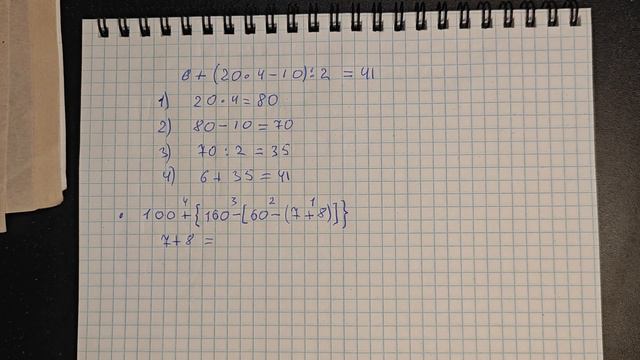 6 + (20 • 4 - 10) : 2 = 41
1) 20 • 4 = 80
2) 80 - 10 = 70
3) 70 : 2 = 35
4) 6 + 35 = 41
4 3 2 1
• 100 + {160 - [60 - (7 + 8)]}
7 + 8 =